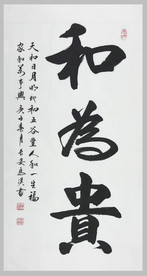 和為貴
天和日月明地和五谷豐人和一生福
家和萬事興